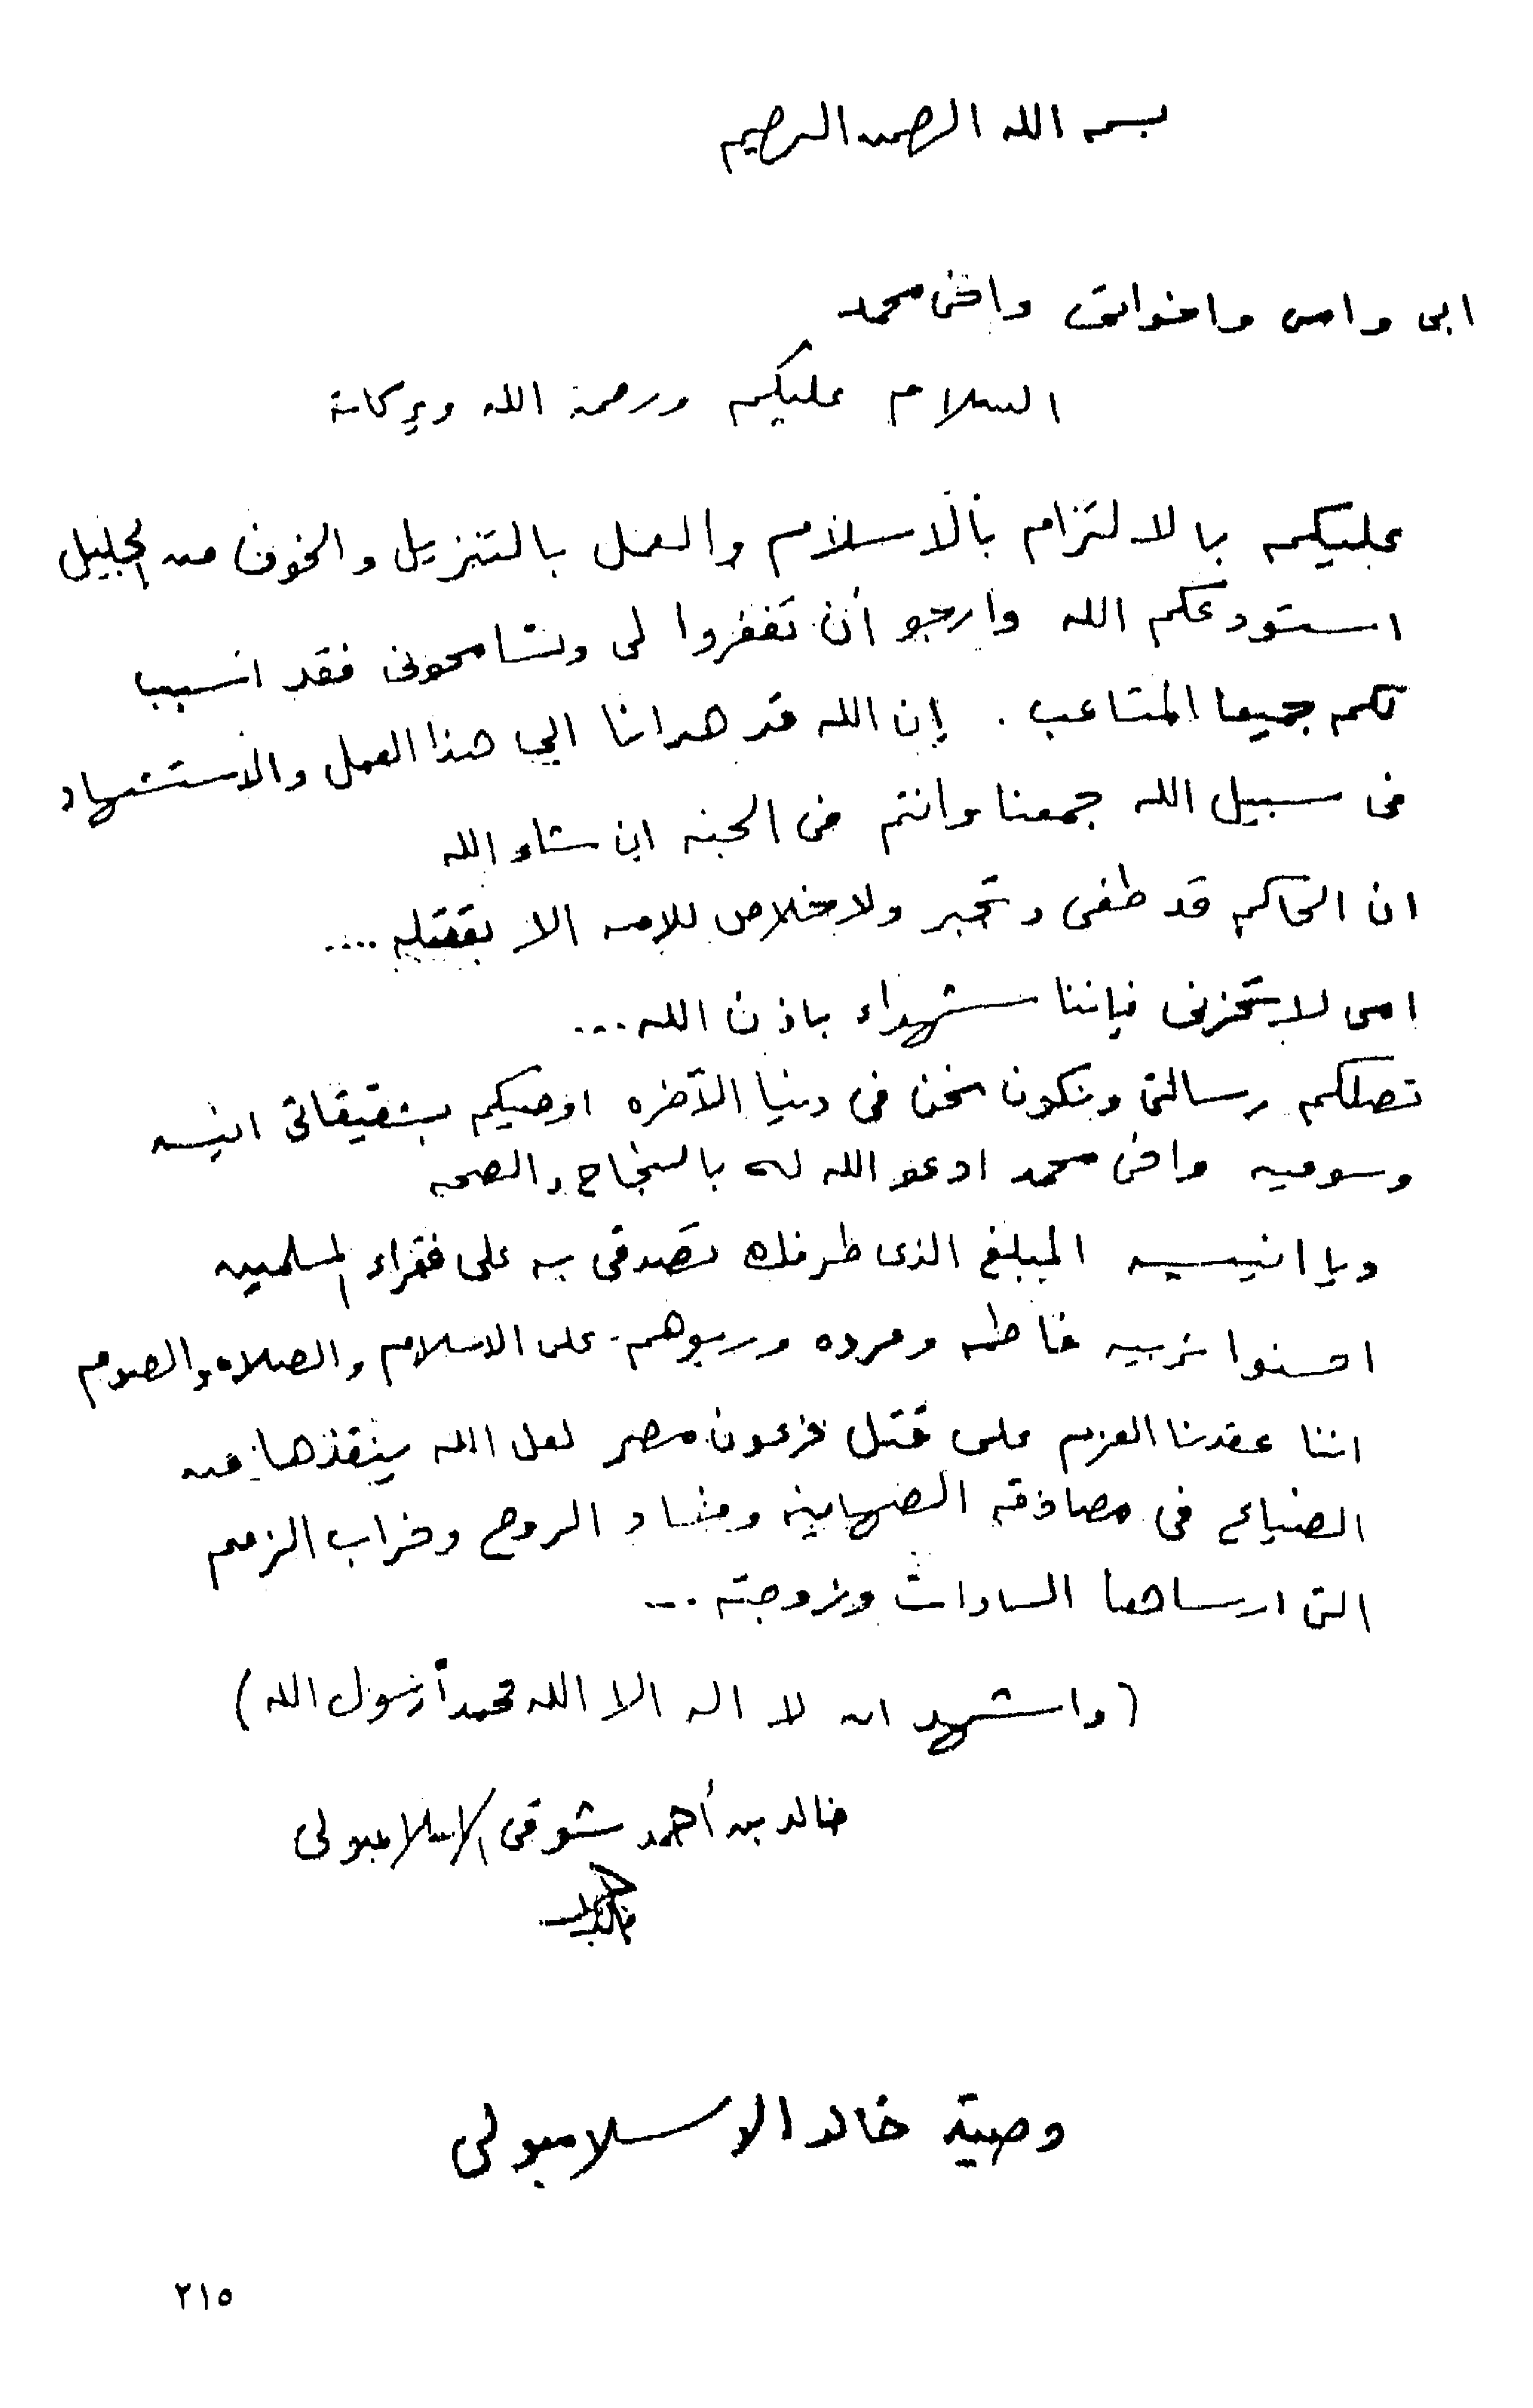 بسم الله الرحمن الرحيم
ابى وامى واخواتى واخى محمد
السلام عليكم ورحمة الله وبركاته
عليكم بالالتزام بالاسلام والعمل بالتنزيل والخوف من الجليل
استودعكم الله وارجو أن تغفروا لى وتسامحونى فقد اسبب
لكم جميعا المتاعب . إن الله قد هدانا الى هذا العمل والاستشهاد
فى سبيل الله جمعنا وانتم فى الجنه ان شاء الله
ان الحاكم قد طغى وتجبر ولا خلاص للامه الا بقتله ....
امى لا تحزنى فإننا شهداء باذن الله ...
تصلكم رسالتى ونكون نحن فى دنيا الآخره اوصيكم بشقيقاتى انيسه
وسوميه واخى محمد ادعو الله له بالنجاح والصحه
ويا انيسه المبلغ الذى طرفك تصدقى به على فقراء المسلمين
احسنوا تربيه فاطمه ومروه وربوهم على الاسلام والصلاه والصوم
اننا عقدنا العزم على قتل فرعون مصر لعل الله ينقذها من
الضياع فى مصادقه الصهاينه وفساد الروح وخراب الذمم
التى ارساها السادات وزوجته ...
(واشهد ان لا اله الا الله محمداً رسول الله)
خالد بن أحمد شوقى الاسلامبولى
وصية خالد الاسلامبولى
٢١٥